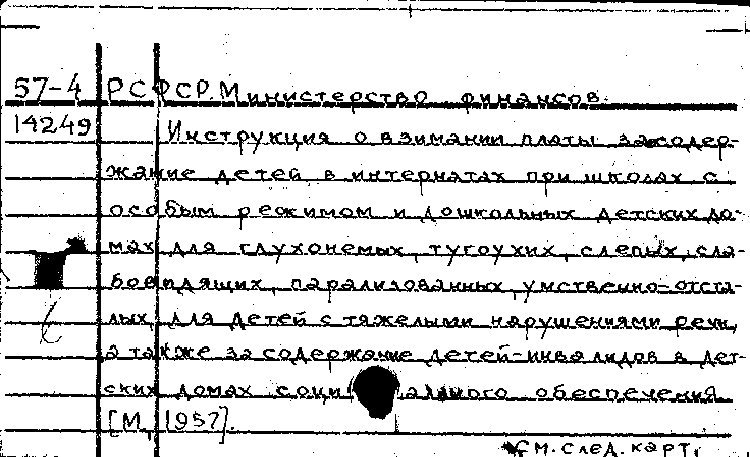 57-4 РСФСР. Министерство финансов.
14249 Инструкция о взимании платы за содер-
жание детей в интернатах при школах с
особым режимом и дошкольных детских до-
мах для глухонемых, тугоухих, слепых, сла-
бовидящих, парализованных, умственно-отста-
лых, для детей с тяжелыми нарушениями речи,
а также за содержание детей-инвалидов в дет-
ских домах социального обеспечения
[М., 1957].
См. след. карт.